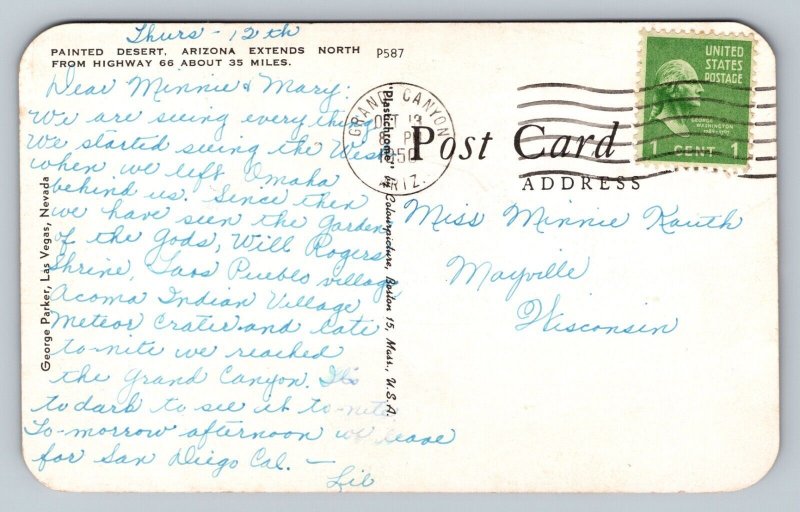 Thurs - 12th
PAINTED DESERT, ARIZONA EXTENDS NORTH
FROM HIGHWAY 66 ABOUT 35 MILES.
P587
Dear Minnie & Mary:
We are seeing everything
We started seeing the West
when we left Omaha
behind us. Since then
we have seen the Garden
of the Gods, Will Rogers
Shrine, Taos Pueblo village
Acoma Indian Village
Meteor Crater and late
to-nite we reached
the Grand Canyon. Its
to dark to see it to-nite
To-morrow afternoon we leave
for San Diego Cal. —
Lil
George Parker, Las Vegas, Nevada
"Plastichrome" by Colourpicture, Boston 15, Mass., U.S.A.
GRAND CANYON
OCT 13
PM
1950
ARIZ.
Post Card
ADDRESS
UNITED
STATES
POSTAGE
GEORGE
WASHINGTON
1 CENT 1
Miss Minnie Kauth
Mayville
Wisconsin